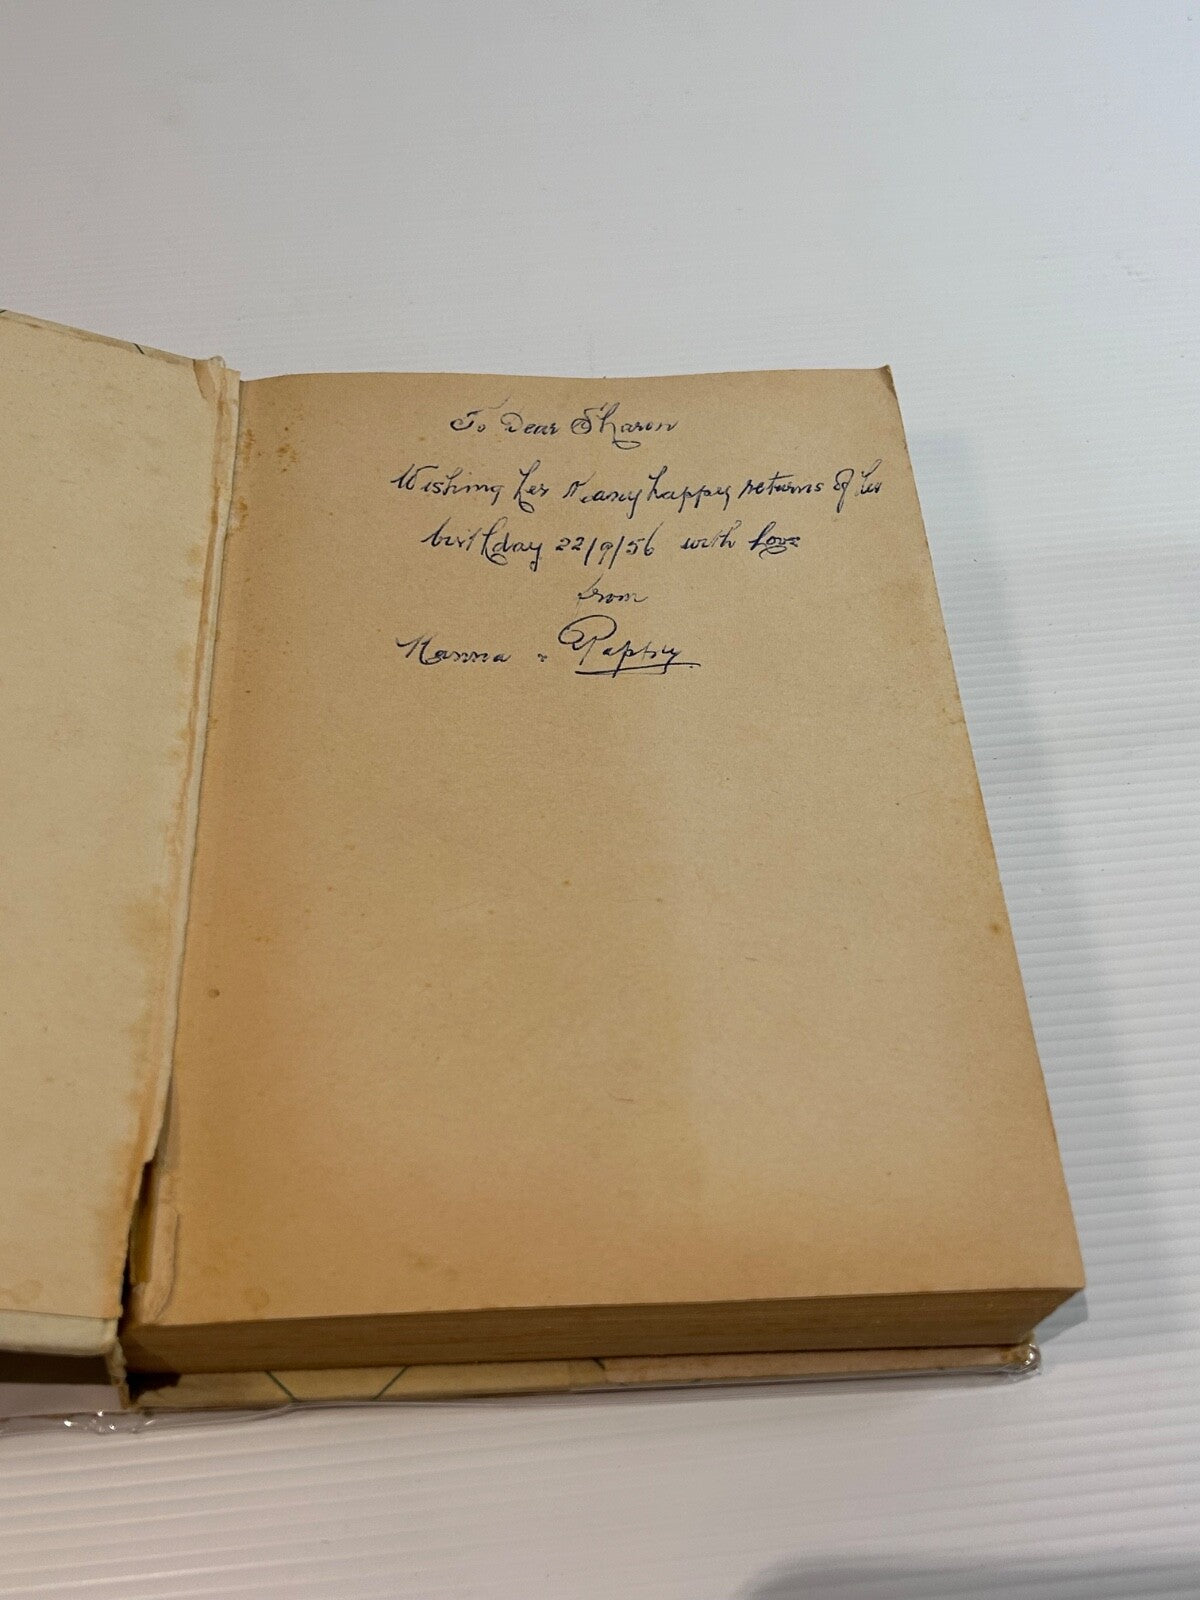 To Dear Sharon
Wishing her Many happy returns of her
birthday 22/9/56 with love
from
Nanna &